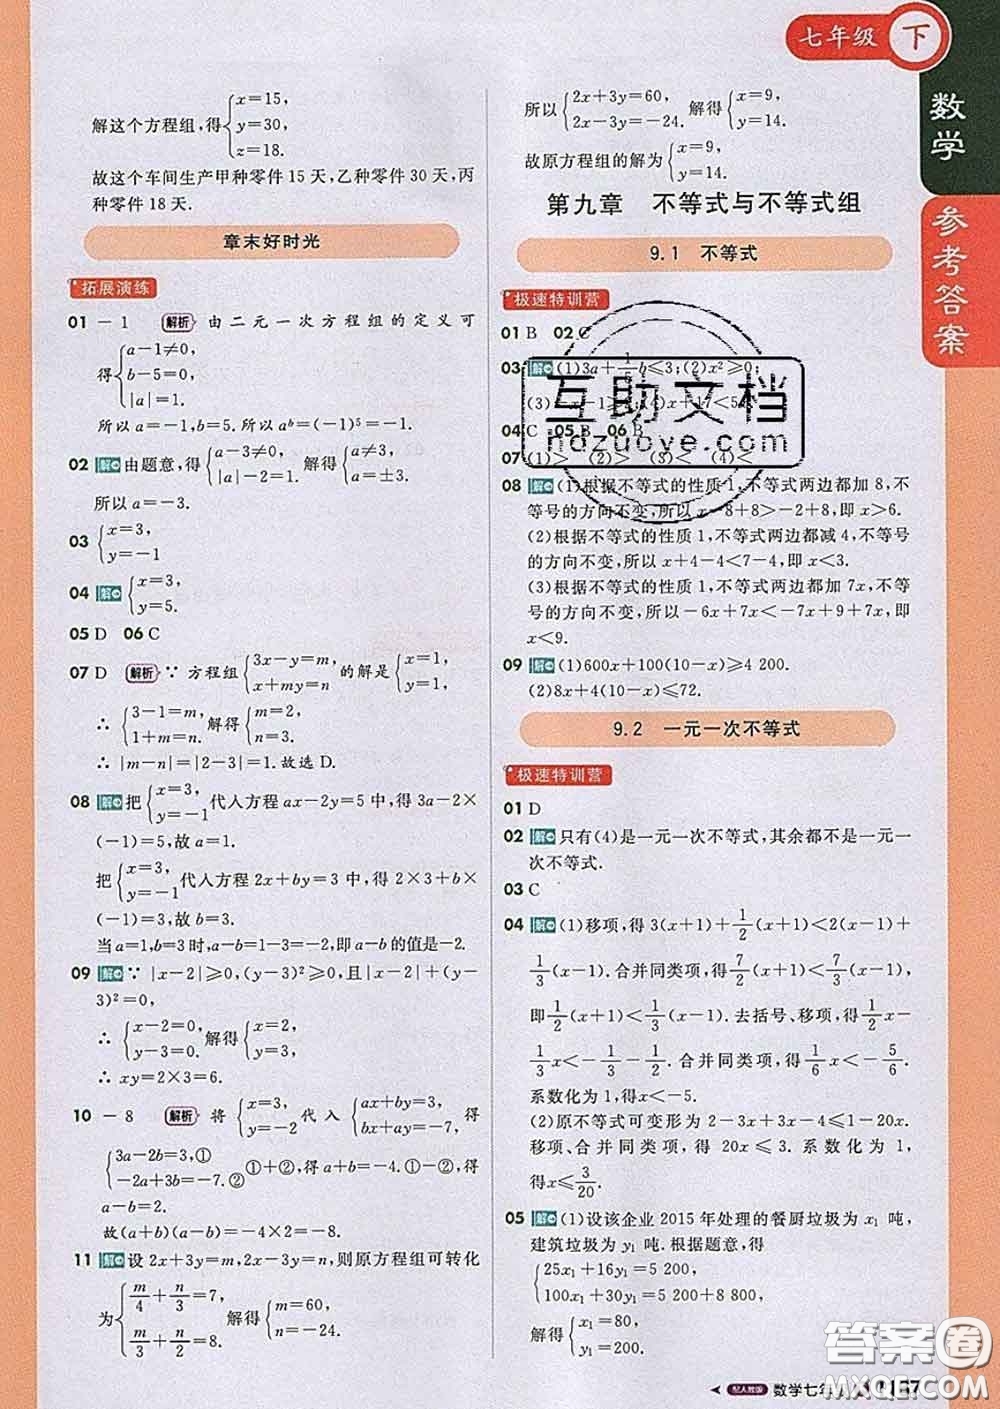 七年级 下
数学
参考答案
解这个方程组,得{x=15,
y=30,
z=18.
故这个车间生产甲种零件 15 天,乙种零件 30 天,丙
种零件 18 天.
章末好时光
拓展演练
01 －1 解析 由二元一次方程组的定义可
得{a－1≠0,
b－5=0,
|a|=1.
所以 a=－1,b=5. 所以 aᵇ=(－1)⁵=－1.
02 解 由题意,得{a－3≠0,
|a|－2=1. 解得{a≠3,
a=±3.
所以 a=－3.
03 {x=3,
y=－1
04 解 {x=3,
y=5.
05 D 06 C
07 D 解析 ∵ 方程组{3x－y=m,
x+my=n 的解是{x=1,
y=1,
∴ {3－1=m,
1+m=n. 解得{m=2,
n=3.
∴ |m－n|=|2－3|=1. 故选 D.
08 解 把{x=3,
y=－1 代入方程 ax－2y=5 中,得 3a－2×
(－1)=5,故 a=1.
把{x=3,
y=－1 代入方程 2x+by=3 中,得 2×3+b×
(－1)=3,故 b=3.
当 a=1,b=3 时,a－b=1－3=－2,即 a－b 的值是－2.
09 解 ∵ |x－2|≥0,(y－3)²≥0,且|x－2|+(y－
3)²=0,
∴ {x－2=0,
y－3=0. 解得{x=2,
y=3,
∴ xy=2×3=6.
10 －8 解析 将{x=3,
y=－2 代入{ax+by=3,
bx+ay=－7, 得
{3a－2b=3,①
－2a+3b=－7.② ①+②,得 a+b=－4. ①－②,得
a－b=2.
故(a+b)(a－b)=－4×2=－8.
11 解 设 2x+3y=m,2x－3y=n,则原方程组可转化
为{m/4+n/3=7,
m/3+n/2=8. 解得{m=60,
n=－24.
所以{2x+3y=60,
2x－3y=－24. 解得{x=9,
y=14.
故原方程组的解为{x=9,
y=14.
第九章 不等式与不等式组
9.1 不等式
极速特训营
01 B 02 C
03 解 (1)3a+ b≤3;(2)x²≥0;
04 C 05 B 06 B
07 (1)> (2)> (3)< (4)<
08 解 (1)根据不等式的性质 1,不等式两边都加 8,不
等号的方向不变,所以 x－8+8>－2+8,即 x>6.
(2)根据不等式的性质 1,不等式两边都减 4,不等号
的方向不变,所以 x+4－4<7－4,即 x<3.
(3)根据不等式的性质 1,不等式两边都加 7x,不等
号的方向不变,所以－6x+7x<－7x+9+7x,即
x<9.
09 解 (1)600x+100(10－x)≥4 200.
(2)8x+4(10－x)≤72.
9.2 一元一次不等式
极速特训营
01 D
02 解 只有(4)是一元一次不等式,其余都不是一元一
次不等式.
03 C
04 解 (1)移项,得 3(x+1)+1/2(x+1)<2(x－1)+
1/3(x－1). 合并同类项,得7/2(x+1)<7/3(x－1),
即1/2(x+1)<1/3(x－1). 去括号、移项,得1/2x－
1/3x<－1/3－1/2. 合并同类项,得1/6x<－5/6.
系数化为 1,得 x<－5.
(2)原不等式可变形为 2－3x+3x－4≤1－20x.
移项、合并同类项,得 20x≤3. 系数化为 1,
得x≤3/20.
05 解 (1)设该企业 2015 年处理的餐厨垃圾为 x₁ 吨,
建筑垃圾为 y₁ 吨. 根据题意,得
{25x₁+16y₁=5 200,
100x₁+30y₁=5 200+8 800,
解得{x₁=80,
y₁=200.
互助文档
hdzuoye.com
答案圈
配人教版 数学七年